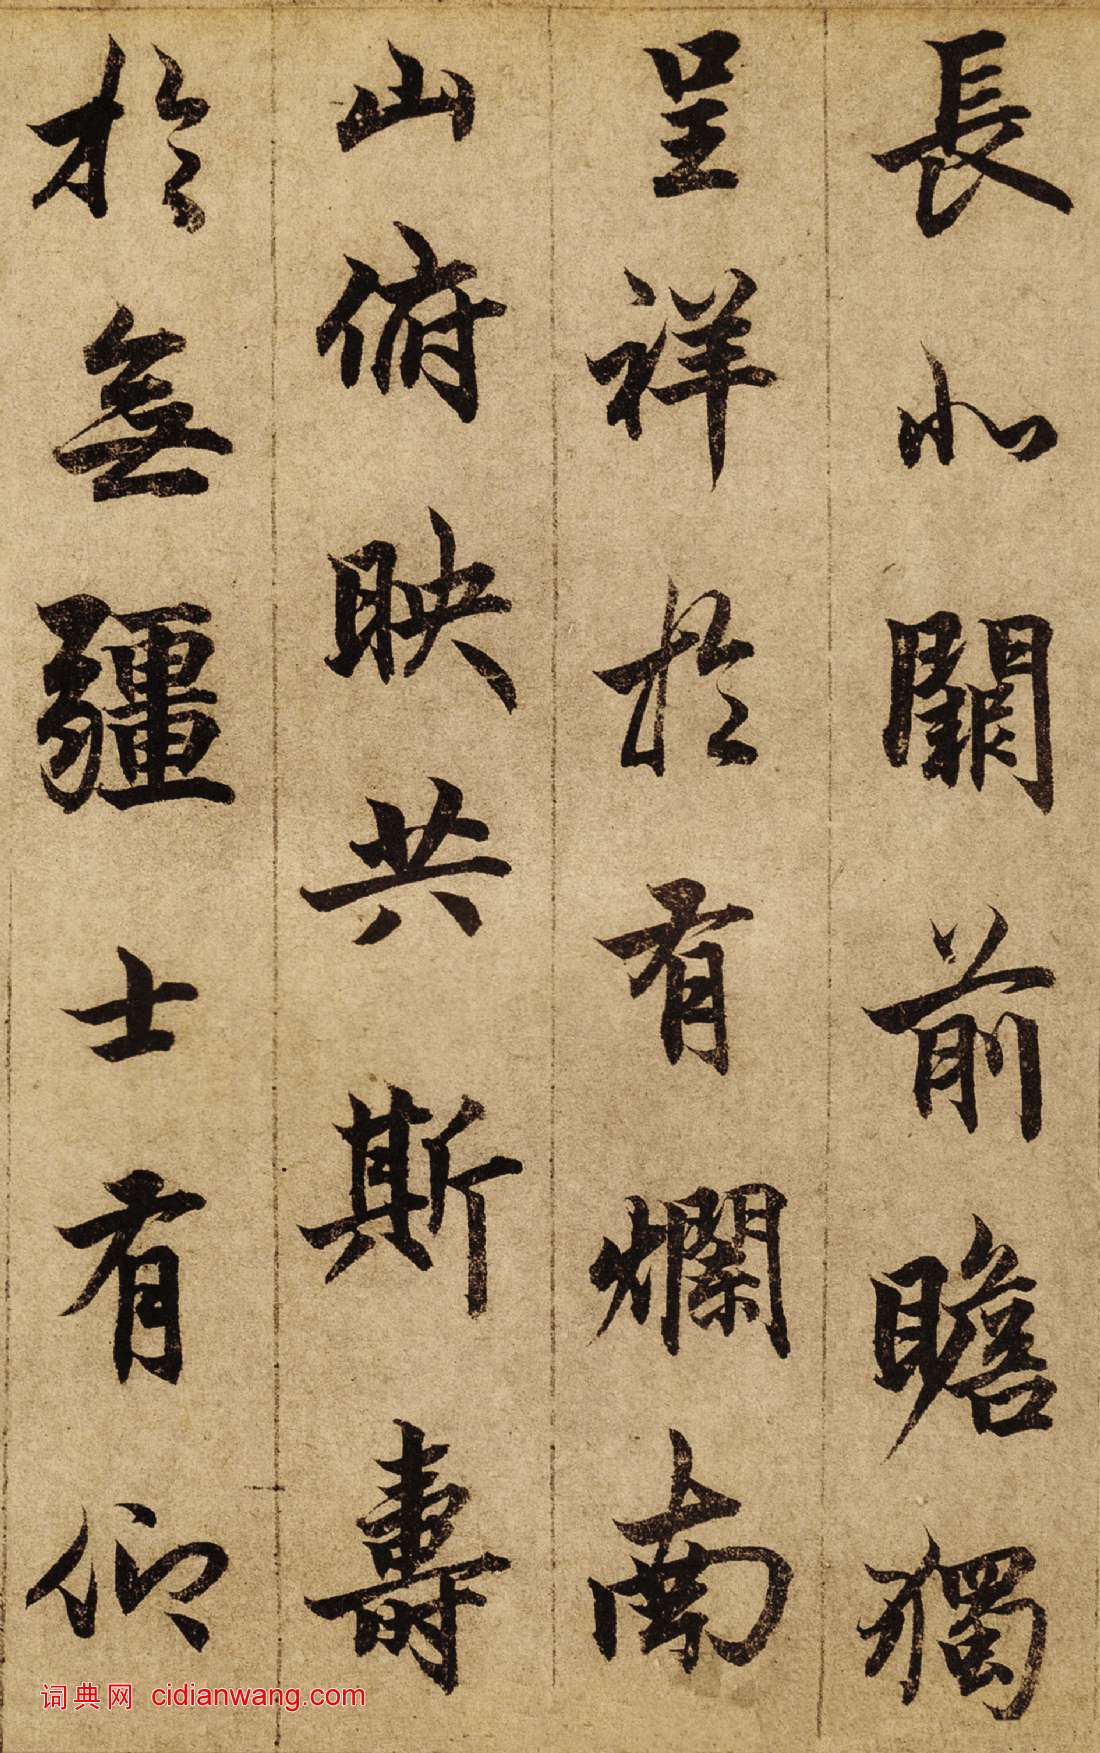 長北闕前瞻獨
呈祥於有爛南
山俯映共斯壽
於無疆士有仰
词典网 cidianwang.com